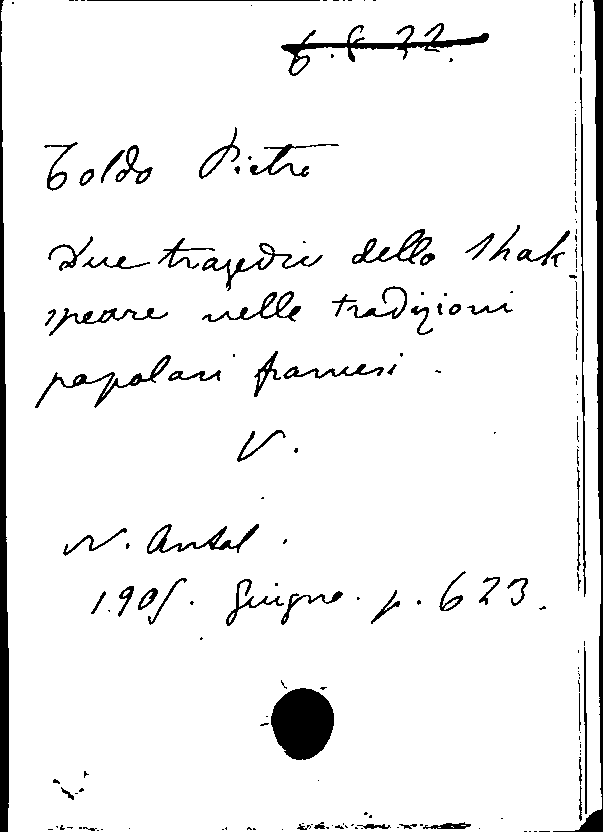 6.8.22.
Toldo Pietro
Due tragedie dello Shak
speare nelle tradizioni
popolari francesi.
V.
N. Antol.
1905. Giugno. p. 623.